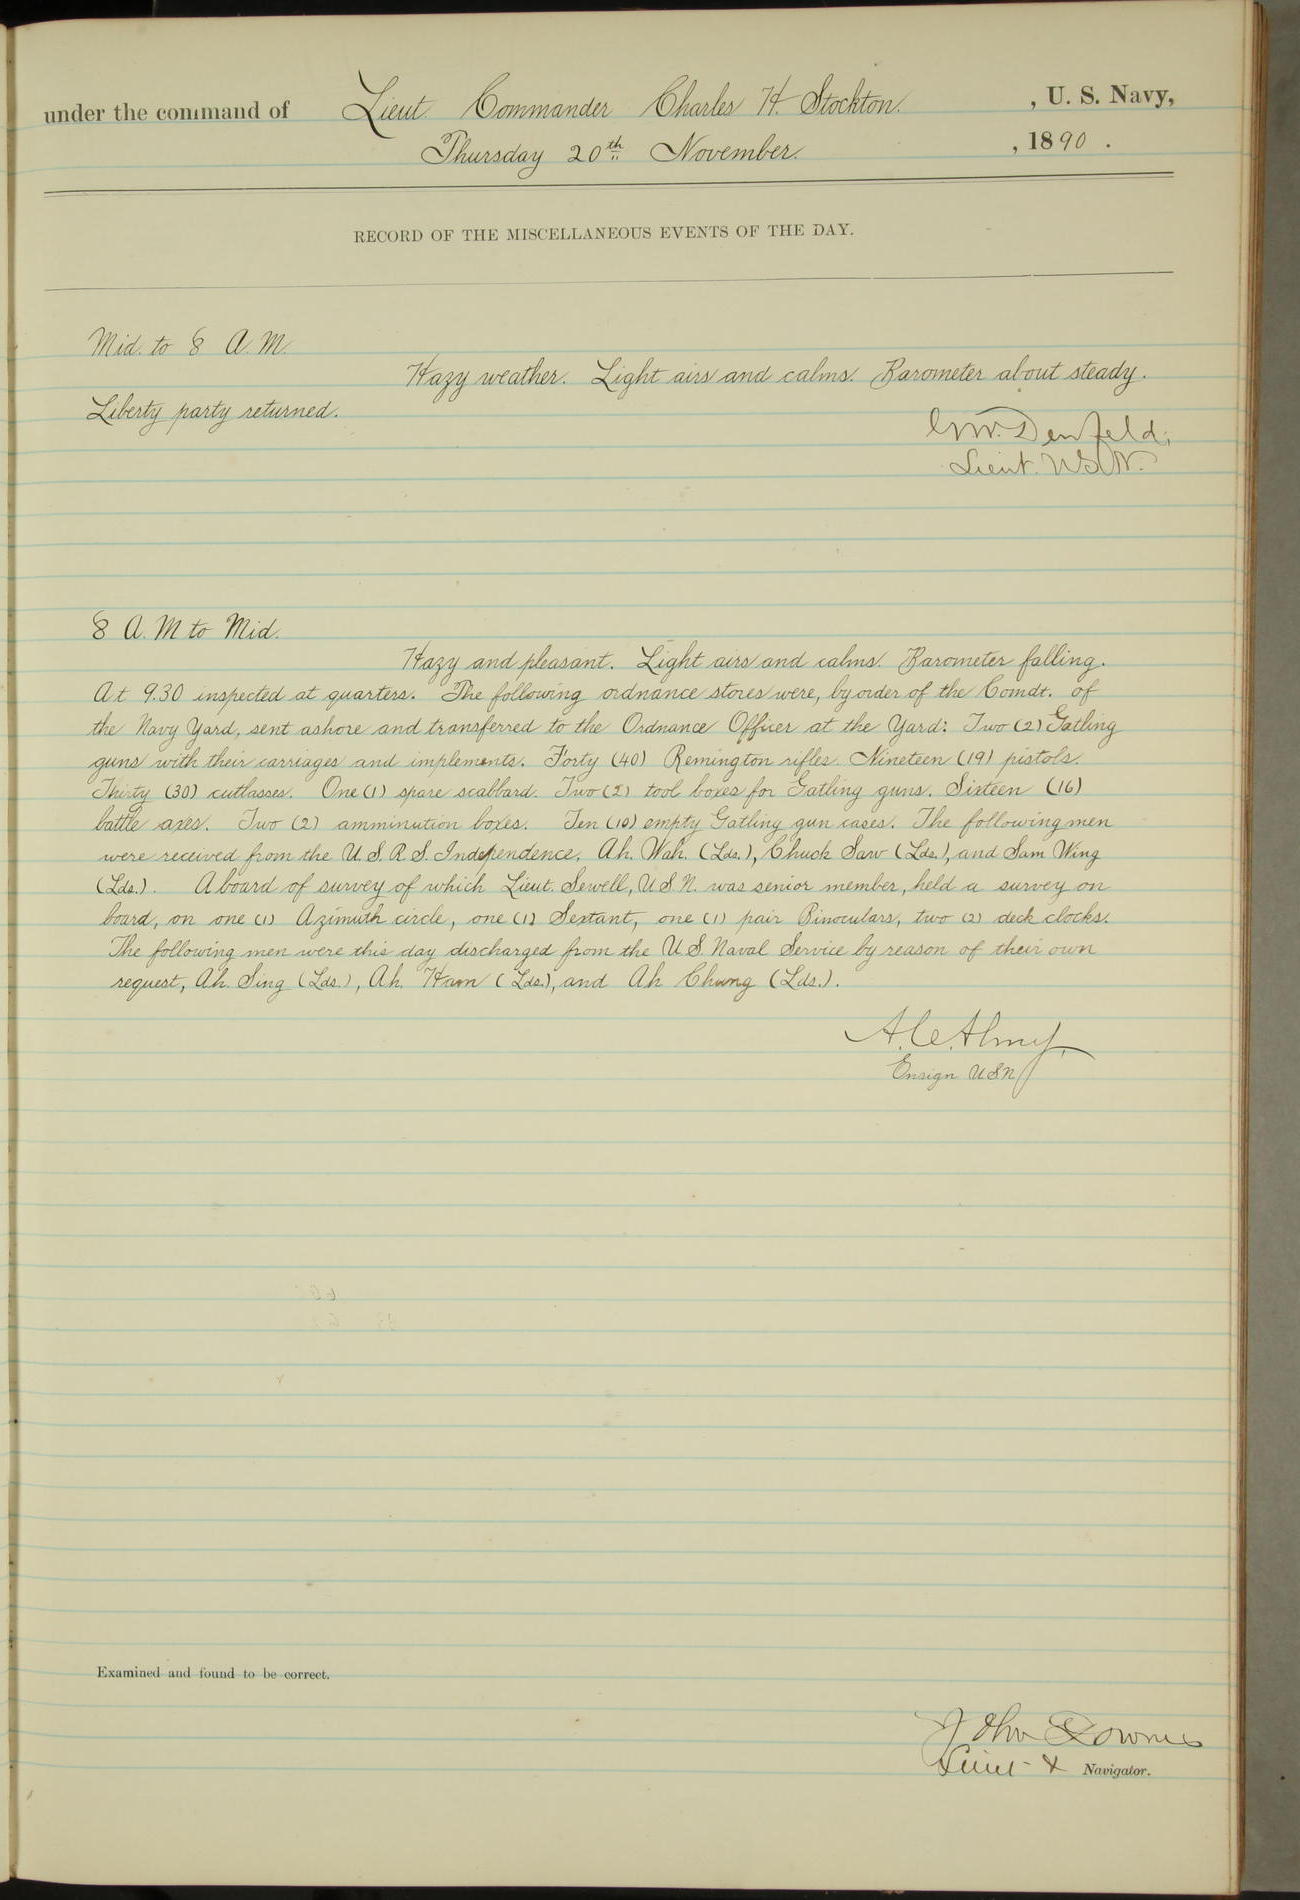 under the command of Lieut. Commander Charles H. Stockton. , U. S. Navy,
Thursday 20th November. , 1890 .
RECORD OF THE MISCELLANEOUS EVENTS OF THE DAY.
Mid. to 8 A.M.
Hazy weather. Light airs and calms. Barometer about steady.
Liberty party returned.
G.W. Denfeld,
Lieut. U.S.N.
8 A.M to Mid.
Hazy and pleasant. Light airs and calms. Barometer falling.
At 9.30 inspected at quarters. The following ordnance stores were, by order of the Comdt. of
the Navy Yard, sent ashore and transferred to the Ordnance Officer at the Yard: Two (2) Gatling
guns with their carriages and implements. Forty (40) Remington rifles. Nineteen (19) pistols.
Thirty (30) cutlasses. One (1) spare scabbard. Two (2) tool boxes for Gatling guns. Sixteen (16)
battle axes. Two (2) amminution boxes. Ten (10) empty Gatling gun cases. The following men
were received from the U.S.R.S. Independence, Ah. Wah. (Lds.), Chuck Saw (Lds.), and Sam Wing
(Lds.). A board of survey of which Lieut. Sewell, U.S.N. was senior member, held a survey on
board, on one (1) Azimuth circle, one (1) Sextant, one (1) pair Binoculars, two (2) deck clocks.
The following men were this day discharged from the U.S. Naval Service by reason of their own
request, Ah. Sing (Lds.), Ah. Ham (Lds.), and Ah Chung (Lds.).
A.C. Almy,
Ensign U.S.N
Examined and found to be correct.
John Downes
Lieut & Navigator.